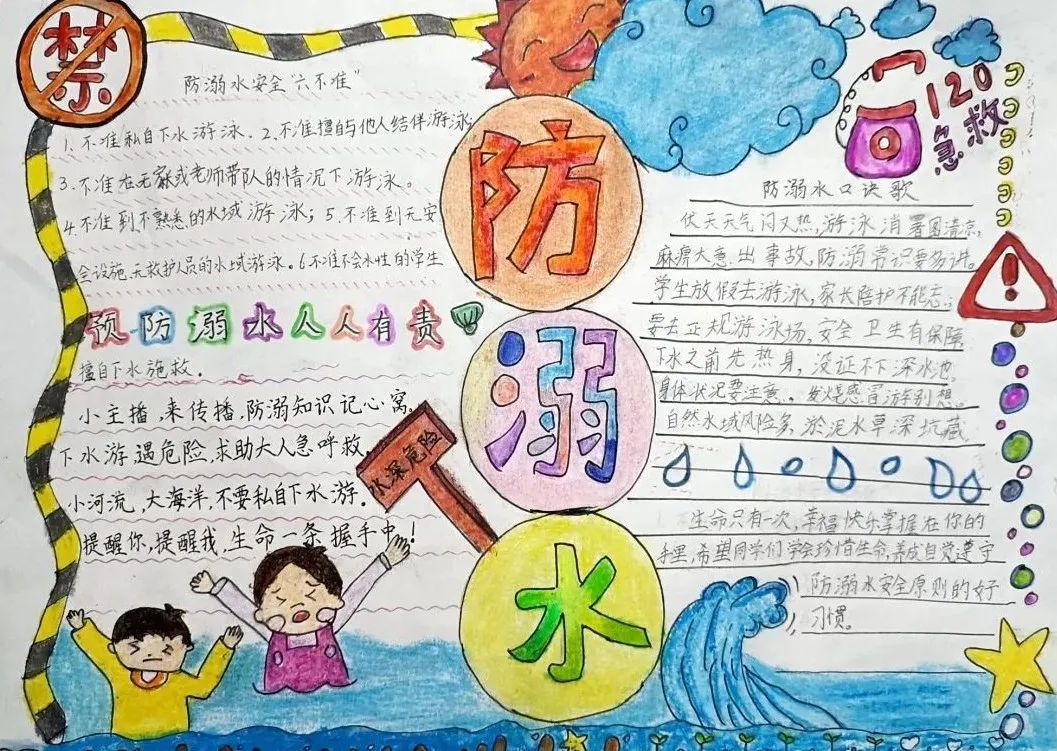 禁
防溺水安全"六不准"
1.不准私自下水游泳.2.不准擅自与他人结伴游泳
3.不准在无家长或老师带队的情况下游泳。
4.不准到不熟悉的水域游泳;5.不准到无安
全设施,无救护人员的水域游泳。6.不准不会水性的学生
预防溺水人人有责
擅自下水施救。
小主播,来传播,防溺知识记心窝。
下水游遇危险,求助大人急呼救,
小河流,大海洋,不要私自下水游。
提醒你,提醒我,生命一条握手中!
水深危险
防
溺
水
120
急救
防溺水口诀歌
伏天天气闷又热,游泳消署图清凉,
麻痹大意出事故,防溺常识要多讲。
学生放假去游泳,家长陪护不能忘;
要去正规游泳场,安全卫生有保障
下水之前先热身,没证不下深水池
身体状况要注意。发烧感冒游别想。
自然水域风险多,淤泥水草深坑藏
生命只有一次,幸福快乐掌握在你的
手里,希望同学们学会珍惜生命,养成自觉遵守
防溺水安全原则的好
习惯。